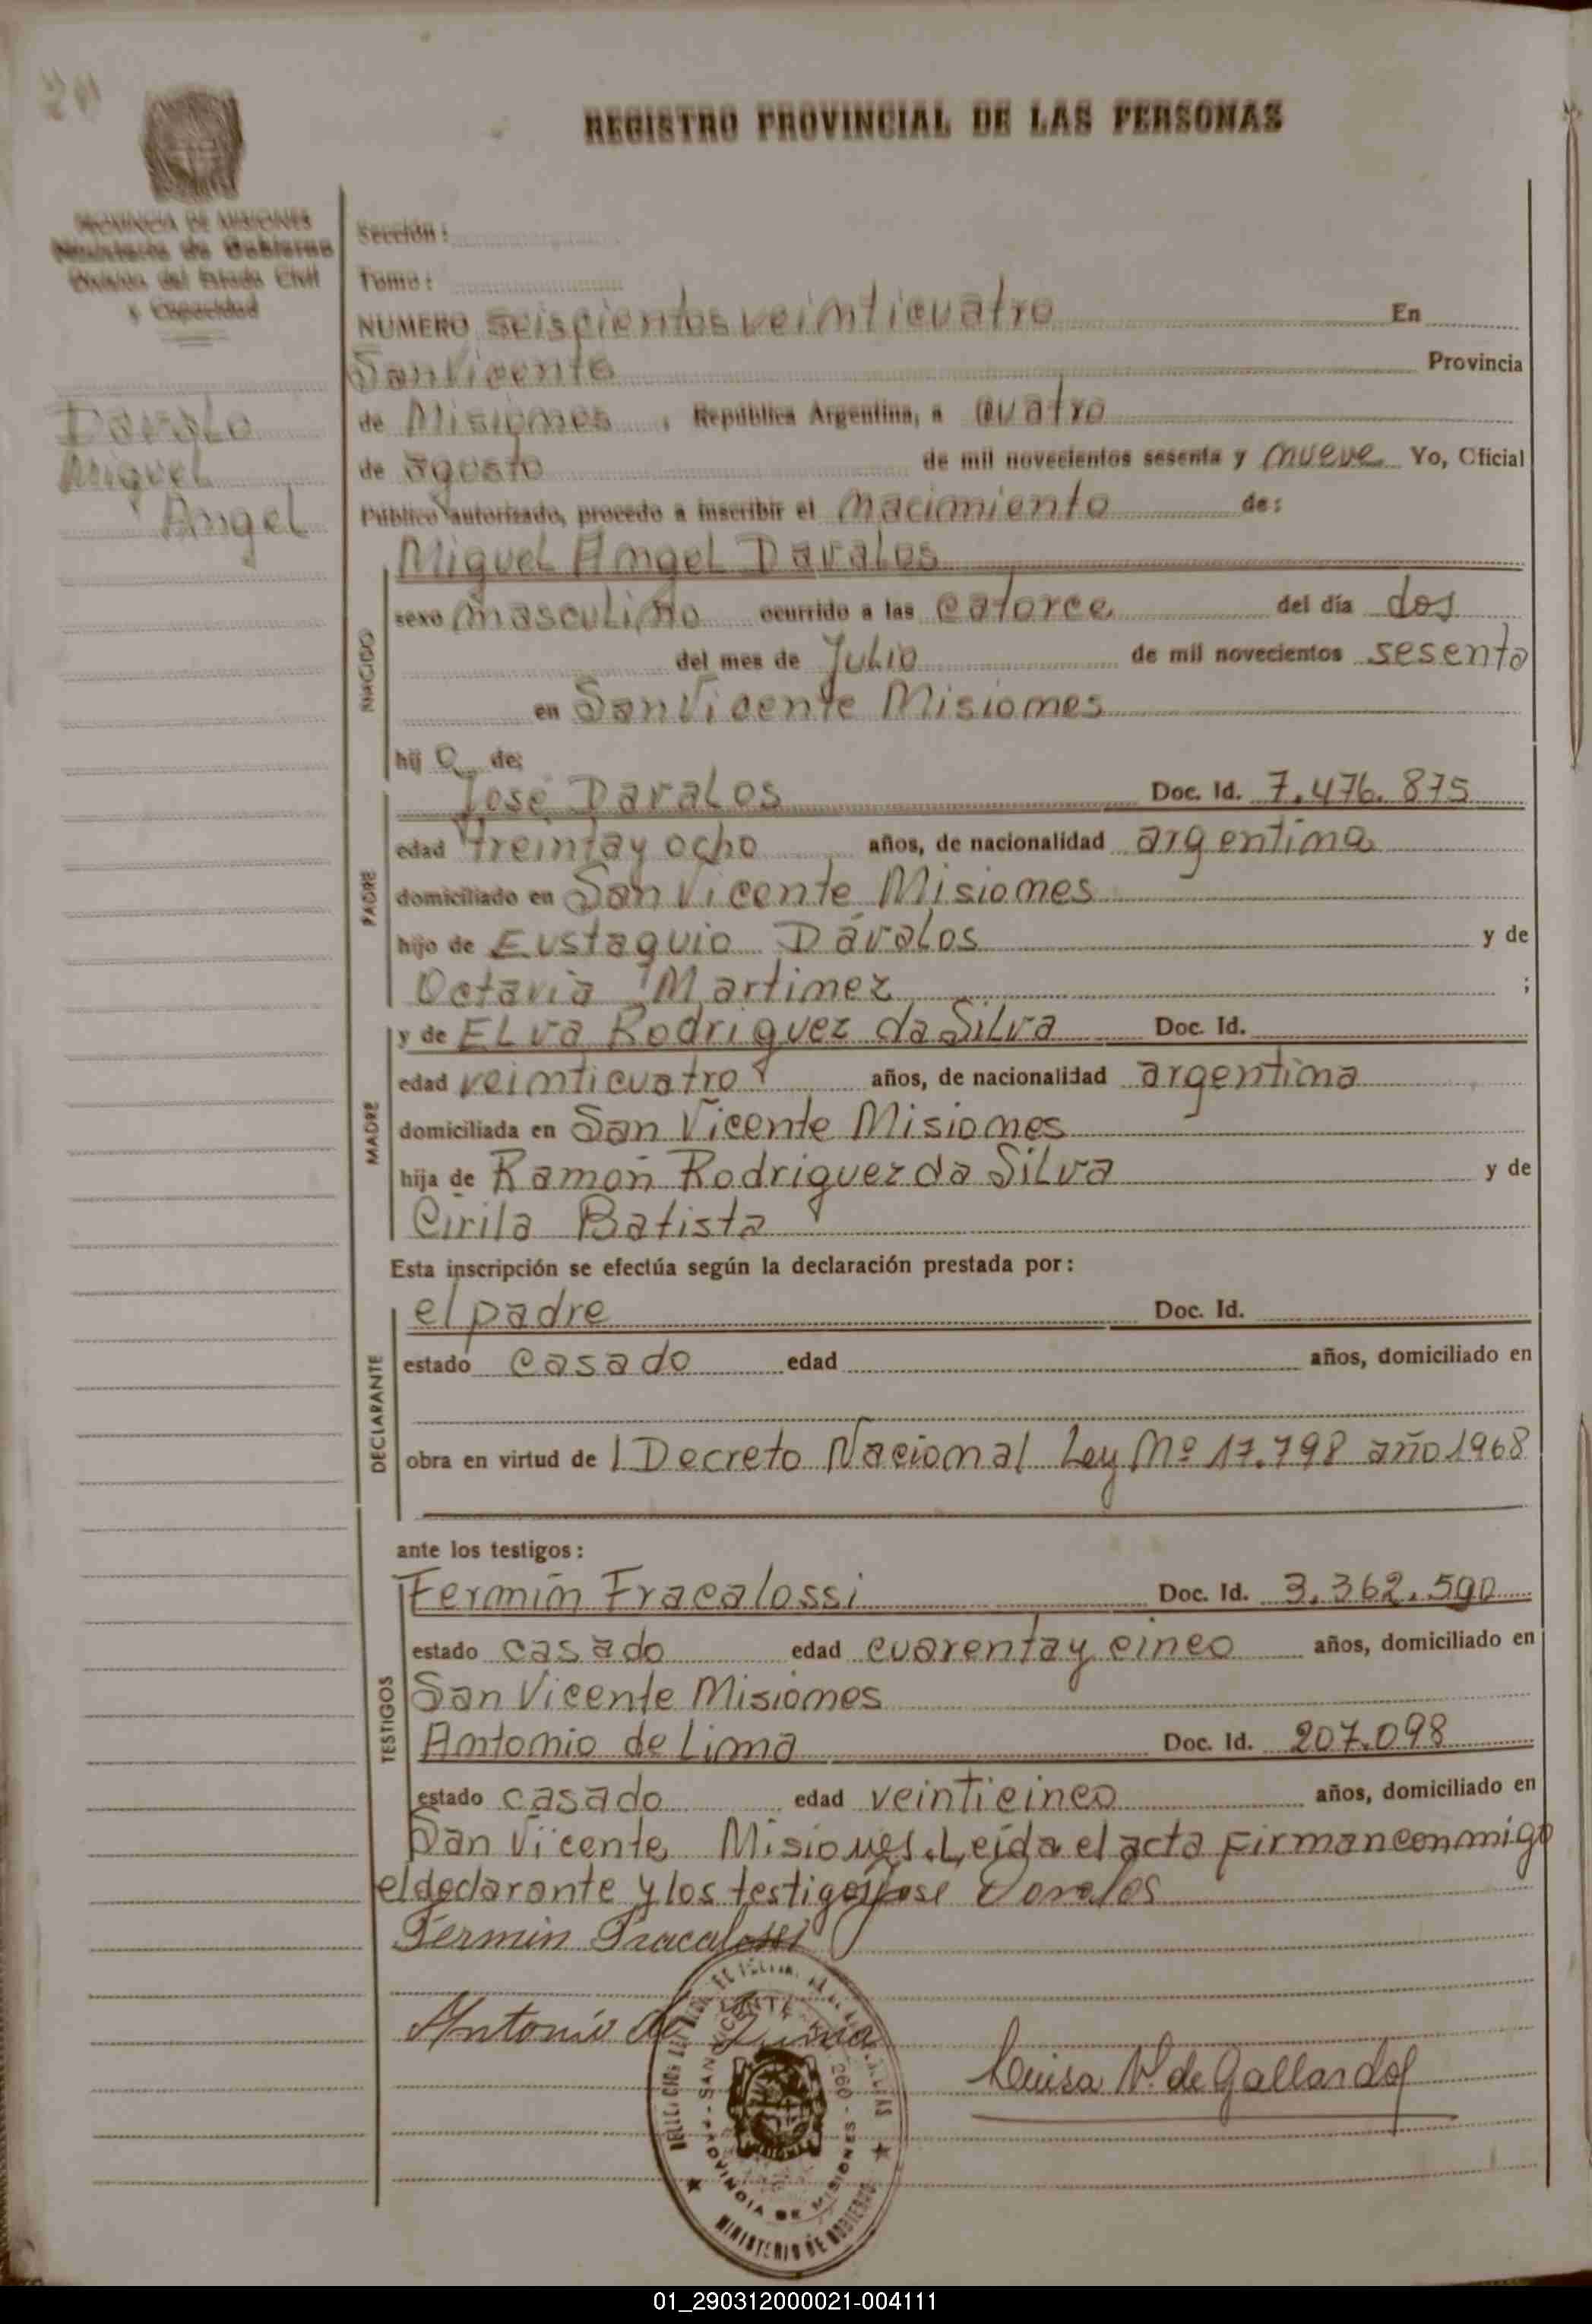 REGISTRO PROVINCIAL DE LAS PERSONAS
PROVINCIA DE MISIONES
Ministerio de Gobierno
División del Estado Civil
y Capacidad
Davalo
Miguel
Angel
Sección:
Tomo:
NUMERO seiscientos veinticuatro En
San Vicente Provincia
de Misiones, República Argentina, a cuatro
de agosto de mil novecientos sesenta y nueve Yo, Oficial
Público autorizado, procedo a inscribir el nacimiento de:
NACIDO
Miguel Angel Davalos
sexo masculino ocurrido a las catorce del día dos
del mes de Julio de mil novecientos sesenta
en San Vicente Misiones
hijo de:
PADRE
José Davalos Doc. Id. 7.476.875
edad treinta y ocho años, de nacionalidad argentina
domiciliado en San Vicente Misiones
hijo de Eustaquio Dávalos y de
Octavia Martinez ;
MADRE
y de Elva Rodriguez da Silva Doc. Id.
edad veinticuatro años, de nacionalidad argentina
domiciliada en San Vicente Misiones
hija de Ramón Rodriguez da Silva y de
Cirila Batista
Esta inscripción se efectúa según la declaración prestada por:
DECLARANTE
el padre Doc. Id.
estado casado edad años, domiciliado en
obra en virtud de l Decreto Nacional Ley Nº 17.798 año 1968
ante los testigos:
TESTIGOS
Fermín Fracalossi Doc. Id. 3.362.590
estado casado edad cuarenta y cinco años, domiciliado en
San Vicente Misiones
Antonio de Lima Doc. Id. 207.098
estado casado edad veinticinco años, domiciliado en
San Vicente Misiones. Leída el acta firman conmigo
el declarante y los testigos Jose Davalos
Fermin Fracalossi
Antonio de Lima
Luisa V. de Gallardo
SAN VICENTE
PROVINCIA DE MISIONES
MINISTERIO DE GOBIERNO
01_290312000021-004111